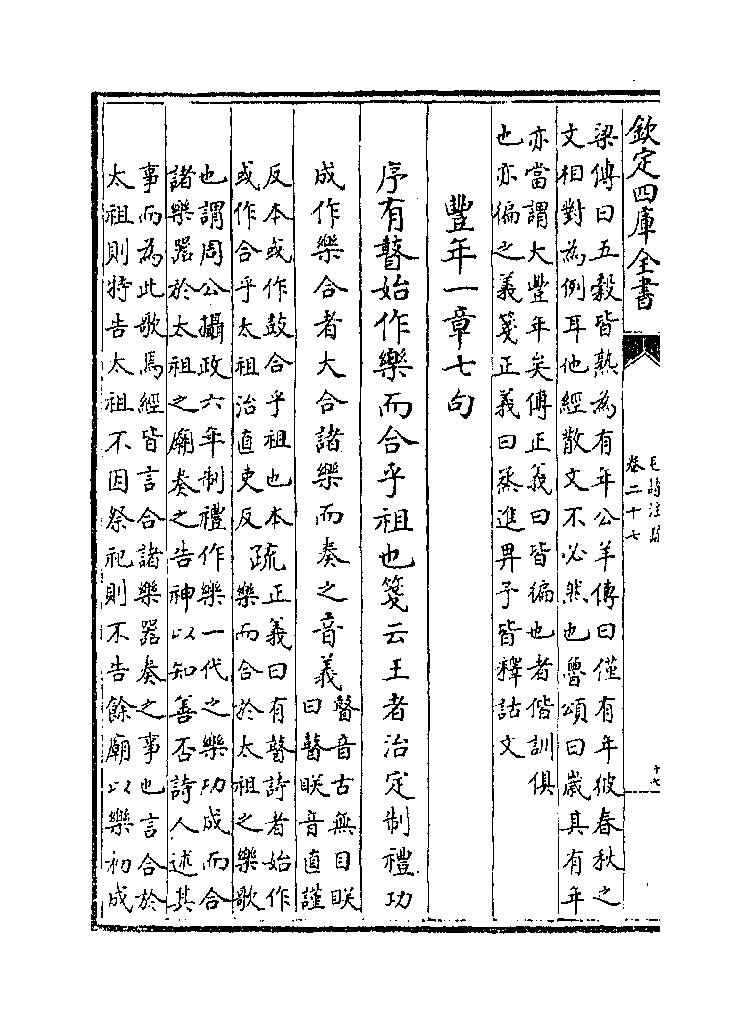 欽定四庫全書
毛詩注疏
卷二十七
十七
梁傳曰五穀皆熟為有年公羊傳曰僅有年彼春秋之
文相對為例耳他經散文不必然也魯頌曰歲其有年
亦當謂大豐年矣傳正義曰皆徧也者偕訓俱
也亦徧之義箋正義曰烝進畀予皆釋詁文
豐年一章七句
序有瞽始作樂而合乎祖也箋云王者治定制禮功
成作樂合者大合諸樂而奏之音義
瞽音古無目眹
曰瞽眹音直謹
反本或作鼓合乎祖也本
或作合乎太祖治直吏反
疏
正義曰有瞽詩者始作
樂而合於太祖之樂歌
也謂周公攝政六年制禮作樂一代之樂功成而合
諸樂器於太祖之廟奏之告神以知善否詩人述其
事而為此歌焉經皆言合諸樂器奏之事也言合於
太祖則特告太祖不因祭祀則不告餘廟以樂初成